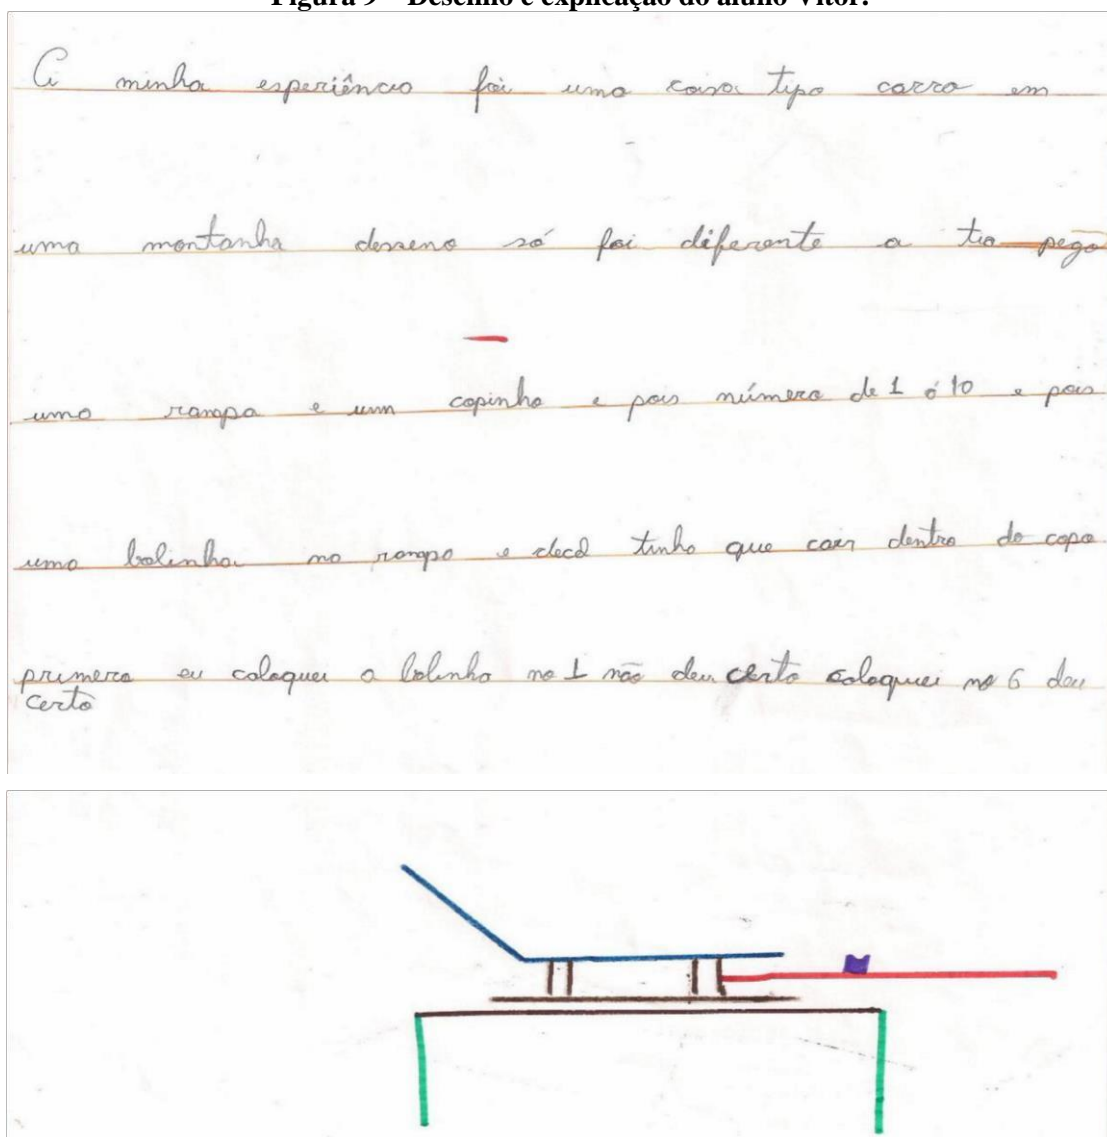 Figura 9 – Desenho e explicação do aluno Vitor.
A minha esperiência foi uma coisa tipo carro em
uma montanha desseno só foi diferente a tia pego
uma rampa e um copinho e pois número de 1 ó 10 e pois
uma bolinha na rampa e tinha que cair dentro do copo
primero eu coloquei a bolinha no 1 não deu certo coloquei no 6 deu
certo